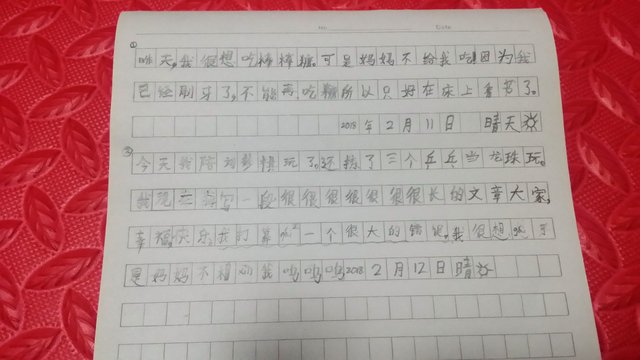 No Date
①
昨天,我很想吃棒棒糖。可是妈妈不给我吃!因为我
已经刷牙了,不能再吃糖所以只好在床上看书了。
2018年2月11日 晴天
②
今天我陪刘彭博玩了。还拣了三个乒乓当龙珠玩。
我现在写一段很很很很很很很长的文章大家,
幸福快乐我的 一个很大的 我很想 可
是妈妈不 我呜呜呜2018 2月12日晴